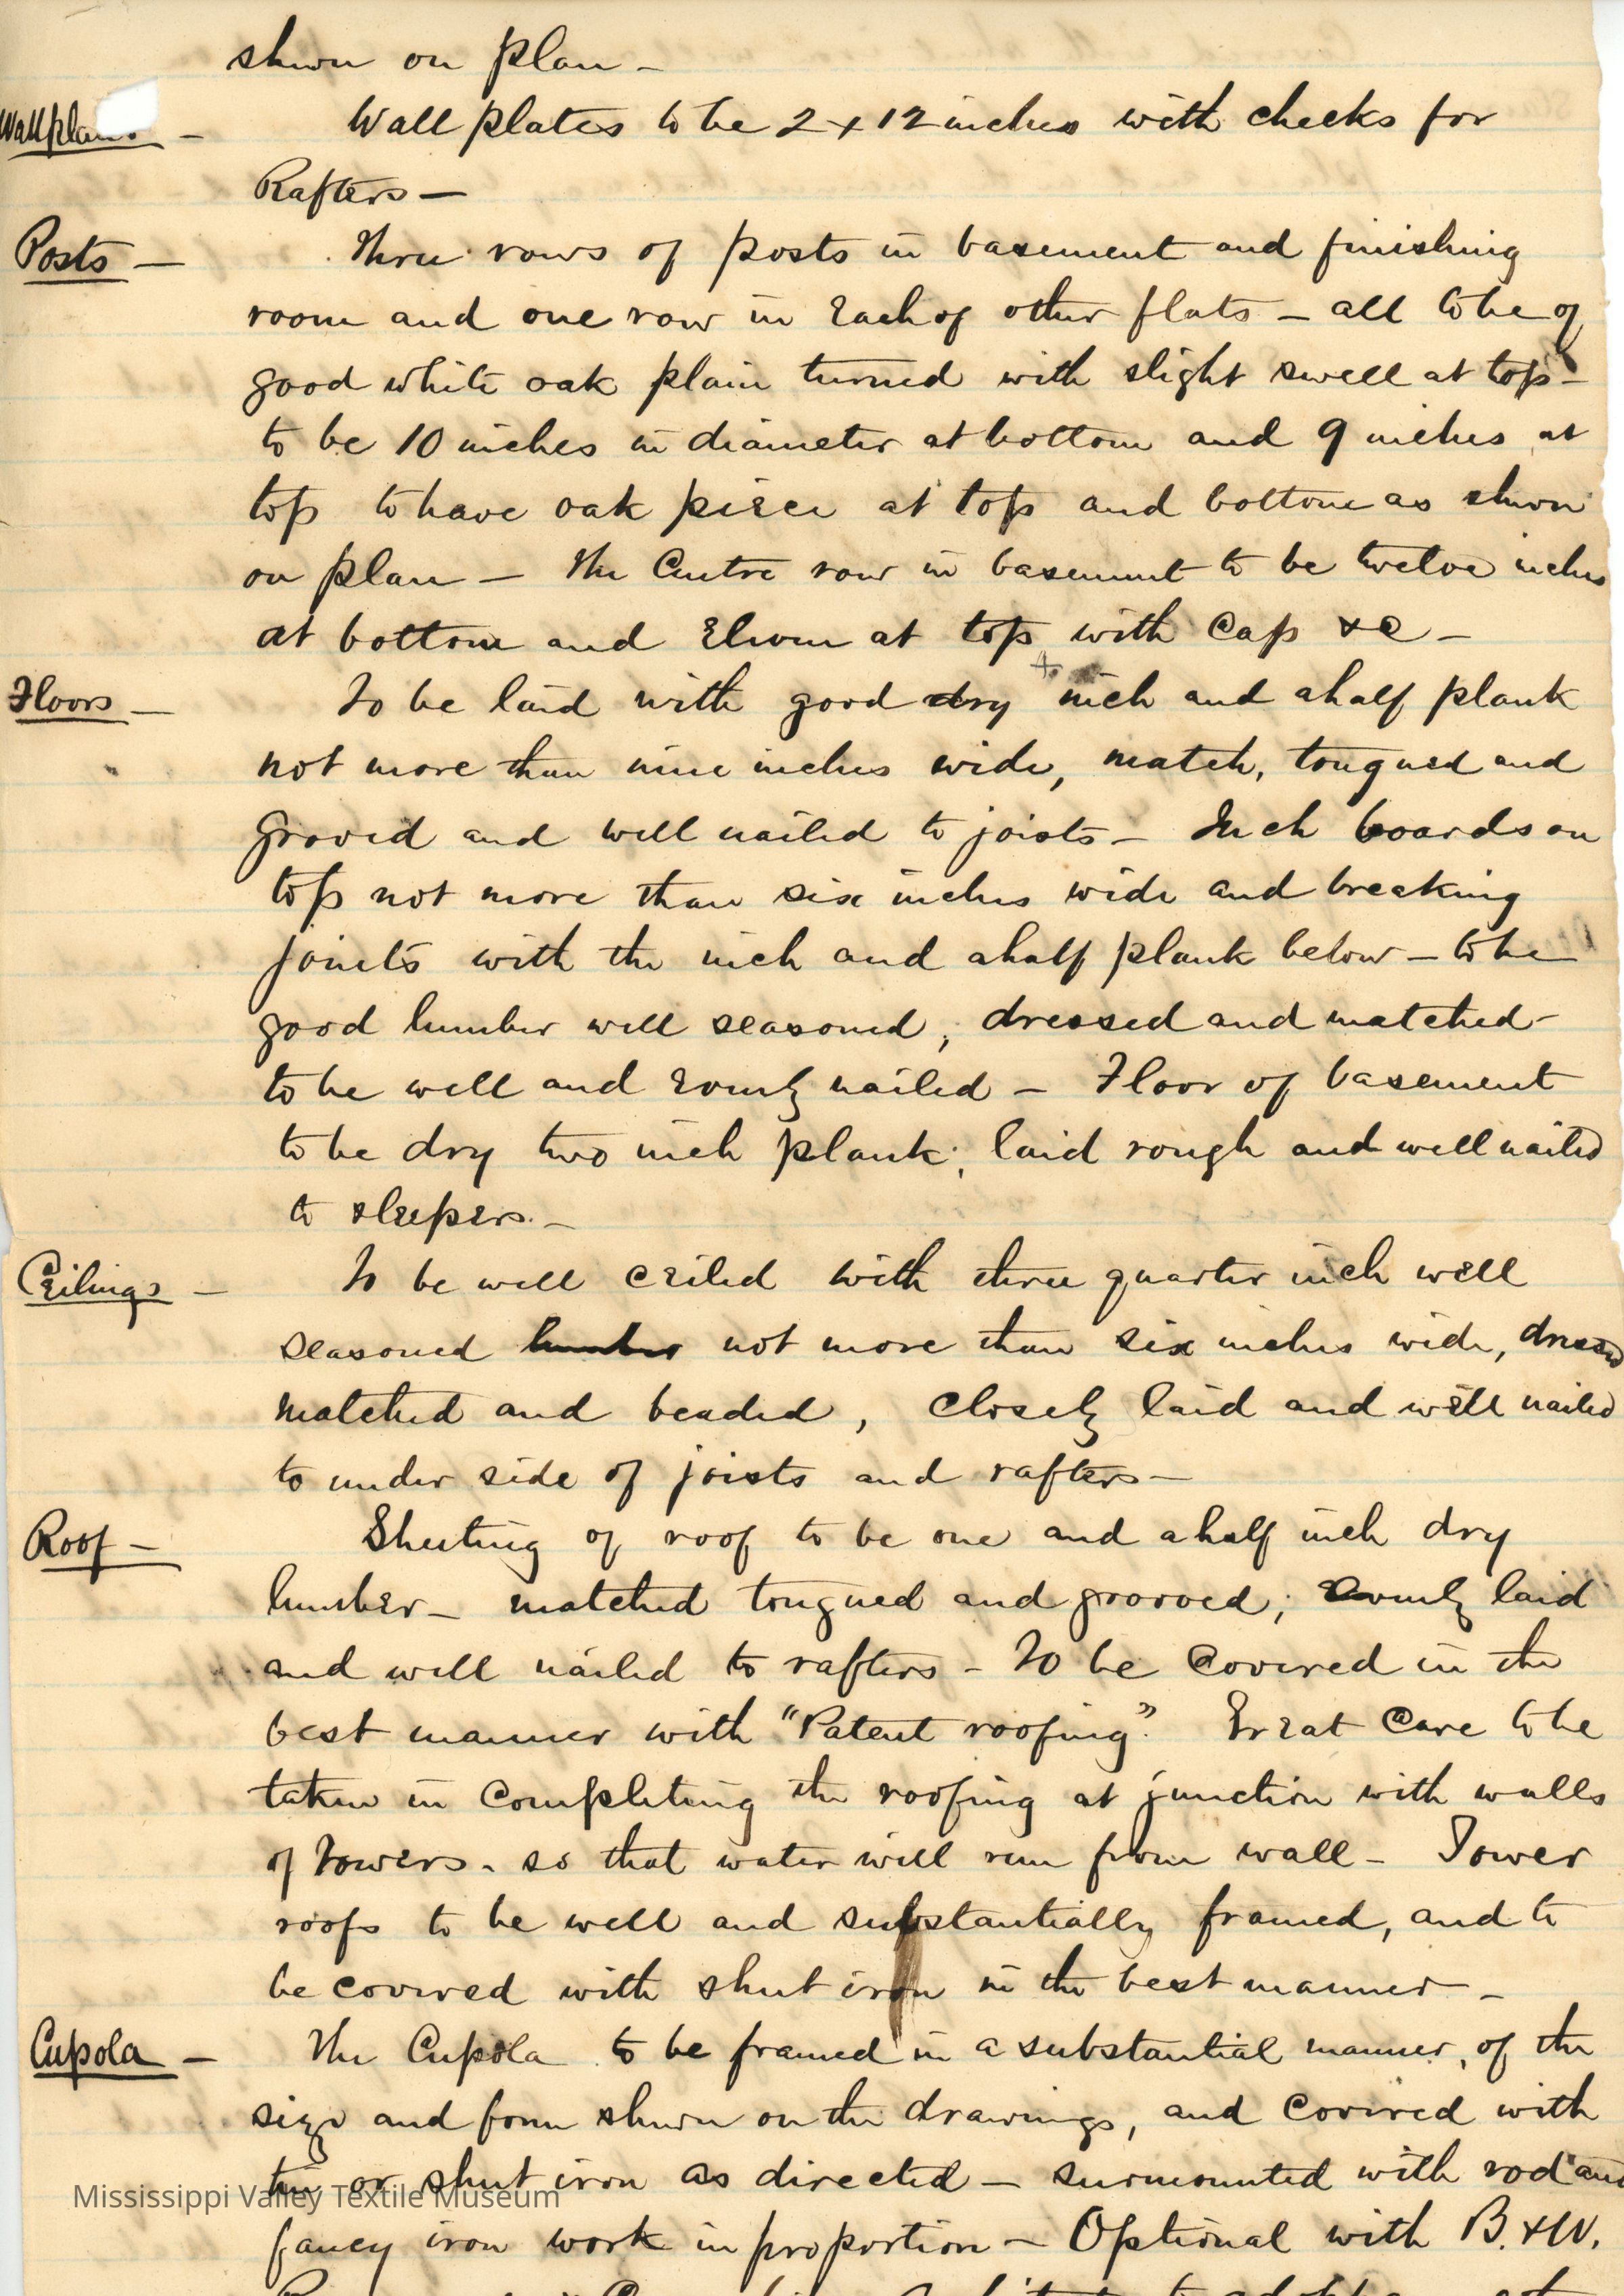 shown on plan —
Wallplates — Wall plates to be 2 x 12 inches with checks for
Rafters —
Posts — Three rows of posts in basement and finishing
room and one row in each of other flats — all to be of
good white oak plain turned with slight swell at top —
to be 10 inches in diameter at bottom and 9 inches at
top to have oak piece at top and bottom as shown
on plan — The Centre row in basement to be twelve inches
at bottom and Eleven at top with Cap &c —
Floors — To be laid with good dry inch and a half plank
not more than nine inches wide, match, tongued and
groved and well nailed to joists — Inch boards on
top not more than six inches wide and breaking
joints with the inch and a half plank below — to be
good lumber well seasoned, dressed and matched —
to be well and evenly nailed — Floor of basement
to be dry two inch plank, laid rough and well nailed
to sleepers. —
Ceilings — To be well ceiled with three quarter inch well
seasoned lumber not more than six inches wide, dressed
matched and beaded, closely laid and well nailed
to under side of joists and rafters —
Roof — Sheeting of roof to be one and a half inch dry
lumber — matched tongued and grooved; evenly laid
and well nailed to rafters — To be covered in the
best manner with "Patent roofing". Great Care to be
taken in Completing the roofing at junction with walls
of towers. so that water will run from wall — Tower
roofs to be well and substantially framed, and to
be covered with sheet iron in the best manner —
Cupola — The Cupola to be framed in a substantial manner, of the
size and form shown on the drawings, and covered with
tin or sheet iron as directed — surmounted with rod and
Mississippi Valley Textile Museum
fancy iron work in proportion — Optional with B. & W.